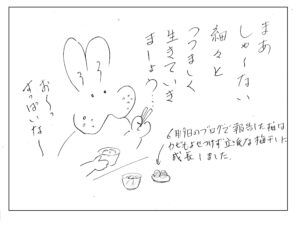 まあ
しゃーない
細々と
つつましく
生きていき
ましょう…
お〜っ
すっぱいな〜
6月9日のブログで報告した梅は
カビもよせつけず立派な梅干しに
成長しました.